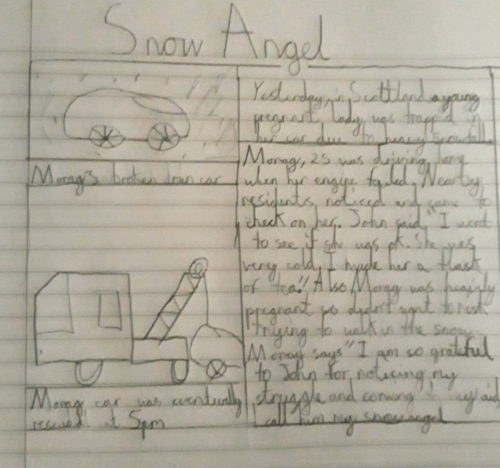 Snow Angel
Yesterday, in Scottland a young
pregnant, lady was trapped in
her car due to heavy snowfall
Morag's broken down car
Morag, 25 was driving home
when her engine failed. Nearby
residents noticed and came to
check on her. John said "I went
to see if she was ok. She was
very cold, I made her a flask
of tea." Also Morag was heavily
pregnant so didn't want to risk
trying to walk in the snow.
Morag says "I am so grateful
to John for noticing my
struggle and coming to my aid
I call him my snow angel
Morag car was eventually
rescued at 5pm